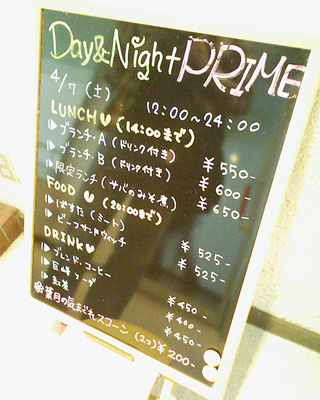 Day&Night PRIME
4/7 (土) 12:00~24:00
LUNCH♥(14:00まで)
▶ブランチ・A (ドリンク付き) ¥550-
▶ブランチ・B (ドリンク付き) ¥600-
▶限定ランチ (サバのみそ煮) ¥650-
FOOD♥(20:00まで)
▶ぱすた (ミート) ¥525-
▶ビーフサンドウィッチ ¥525-
DRINK♥
▶ブレンド・コーヒー ¥450-
▶巨峰ソーダ ¥400-
▶紅茶 ¥450-
葉月の気まぐれスコーン (2コ) ¥200-